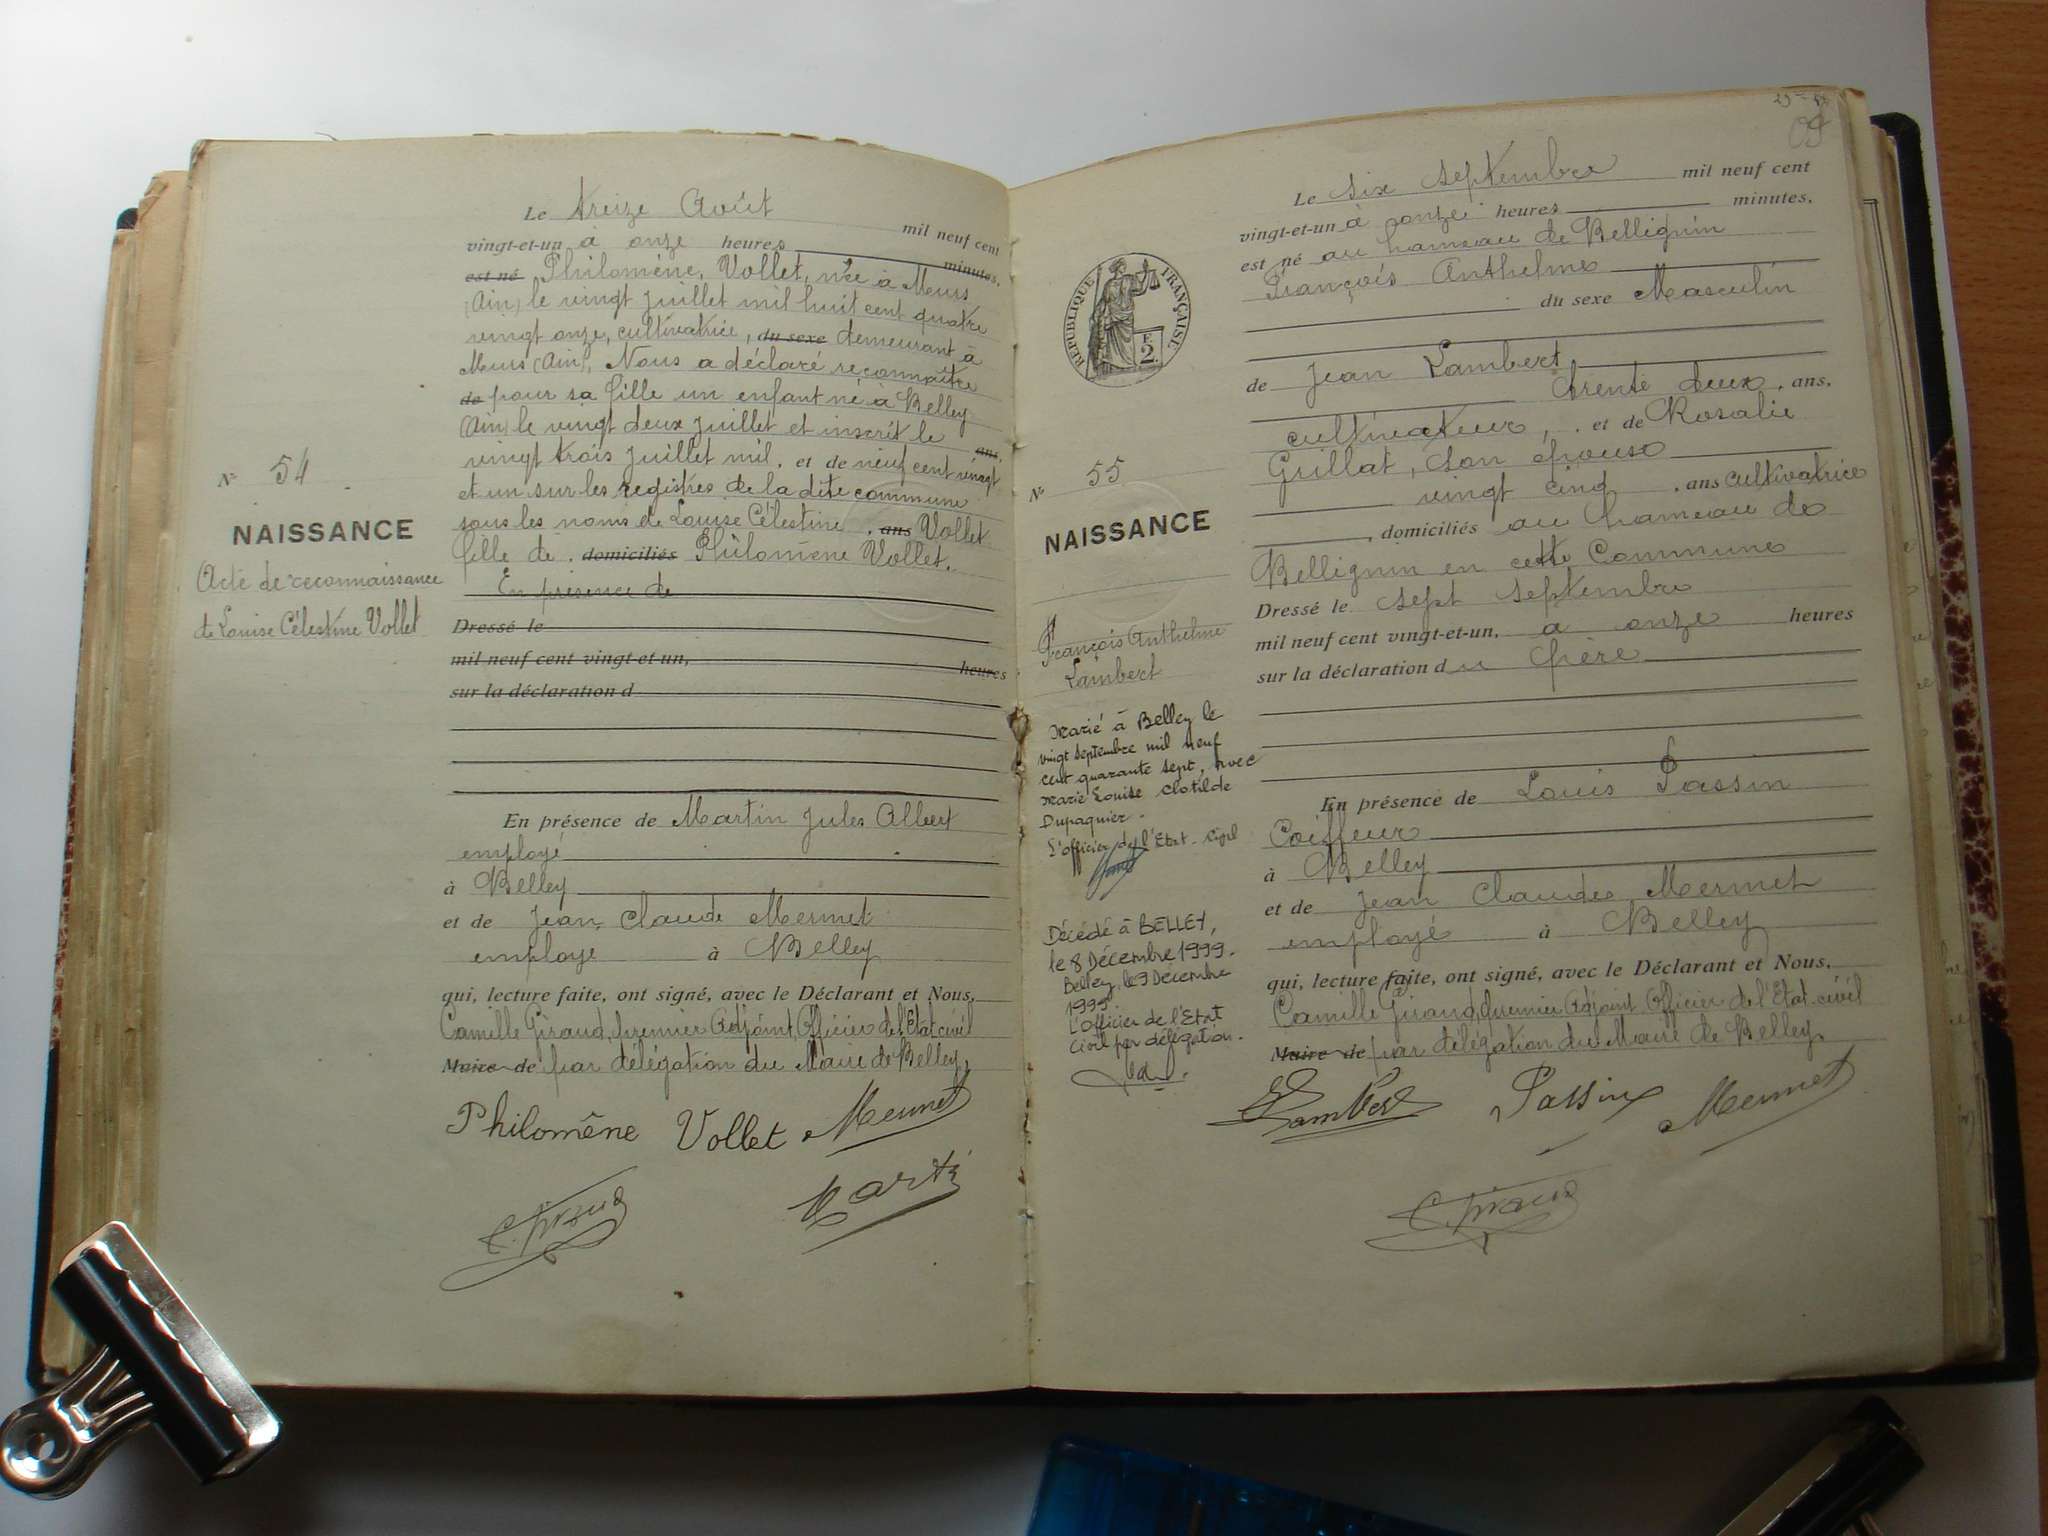 Nº 54
NAISSANCE
Acte de reconnaissance
de Louise Célestine Vollet
Le treize Août mil neuf cent
vingt-et-un à onze heures minutes,
est né Philomène, Vollet, née à Murs
(Ain) le vingt juillet mil huit cent quatre
vingt onze, cultivatrice, du sexe demeurant à
Murs (Ain), Nous a déclaré reconnaître
de pour sa fille un enfant né à Belley
(Ain) le vingt deux juillet et inscrit le ans,
vingt trois juillet mil, et de neuf cent vingt
et un sur les registres de la dite commune
sous les noms de Louise Célestine, ans Vollet
fille de, domiciliés Philomène Vollet.
En présence de
Dressé le
mil neuf cent vingt et un, heures
sur la déclaration d
En présence de Martin Jules Albert
employé
à Belley
et de Jean Claude Mermet
employe à Belley
qui, lecture faite, ont signé, avec le Déclarant et Nous,
Camille Giraud, premier Adjoint, Officier de l'Etat civil
Maire de par délégation du Maire de Belley,
Philomène Vollet Mermet
C. Giraud Martin
09
RÉPUBLIQUE FRANÇAISE
2
Nº 55
NAISSANCE
François Anthelme
Lambert
Marié à Belley le
vingt septembre mil neuf
cent quarante sept, avec
Marie Louise Clotilde
Dupaquier.
L'officier de l'Etat-Civil
Décédé à BELLEY,
le 8 Décembre 1999.
Belley, le 9 Décembre
1999
L'Officier de l'Etat
Civil par délégation.
Le six septembre mil neuf cent
vingt-et-un à onze heures minutes,
est né au hameau de Bellignin
François Anthelme
du sexe Masculin
de Jean Lambert
trente deux, ans,
cultivateur, et de Rosalie
Grillat, son épouse
vingt cinq, ans cultivatrice
, domiciliés au hameau de
Bellignin en cette Commune
Dressé le sept septembre
mil neuf cent vingt-et-un, à onze heures
sur la déclaration du Père
En présence de Louis Passin
Coiffeur
à Belley
et de Jean Claude Mermet
employé à Belley
qui, lecture faite, ont signé, avec le Déclarant et Nous,
Camille Giraud, premier Adjoint Officier de l'Etat civil
Maire de par délégation du Maire de Belley,
Lambert Passin Mermet
C. Giraud